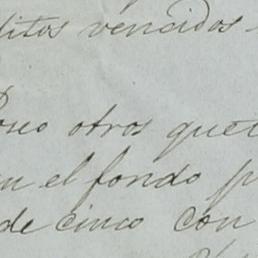 ditos vencidos
otros que
en el fondo p
de cinco con